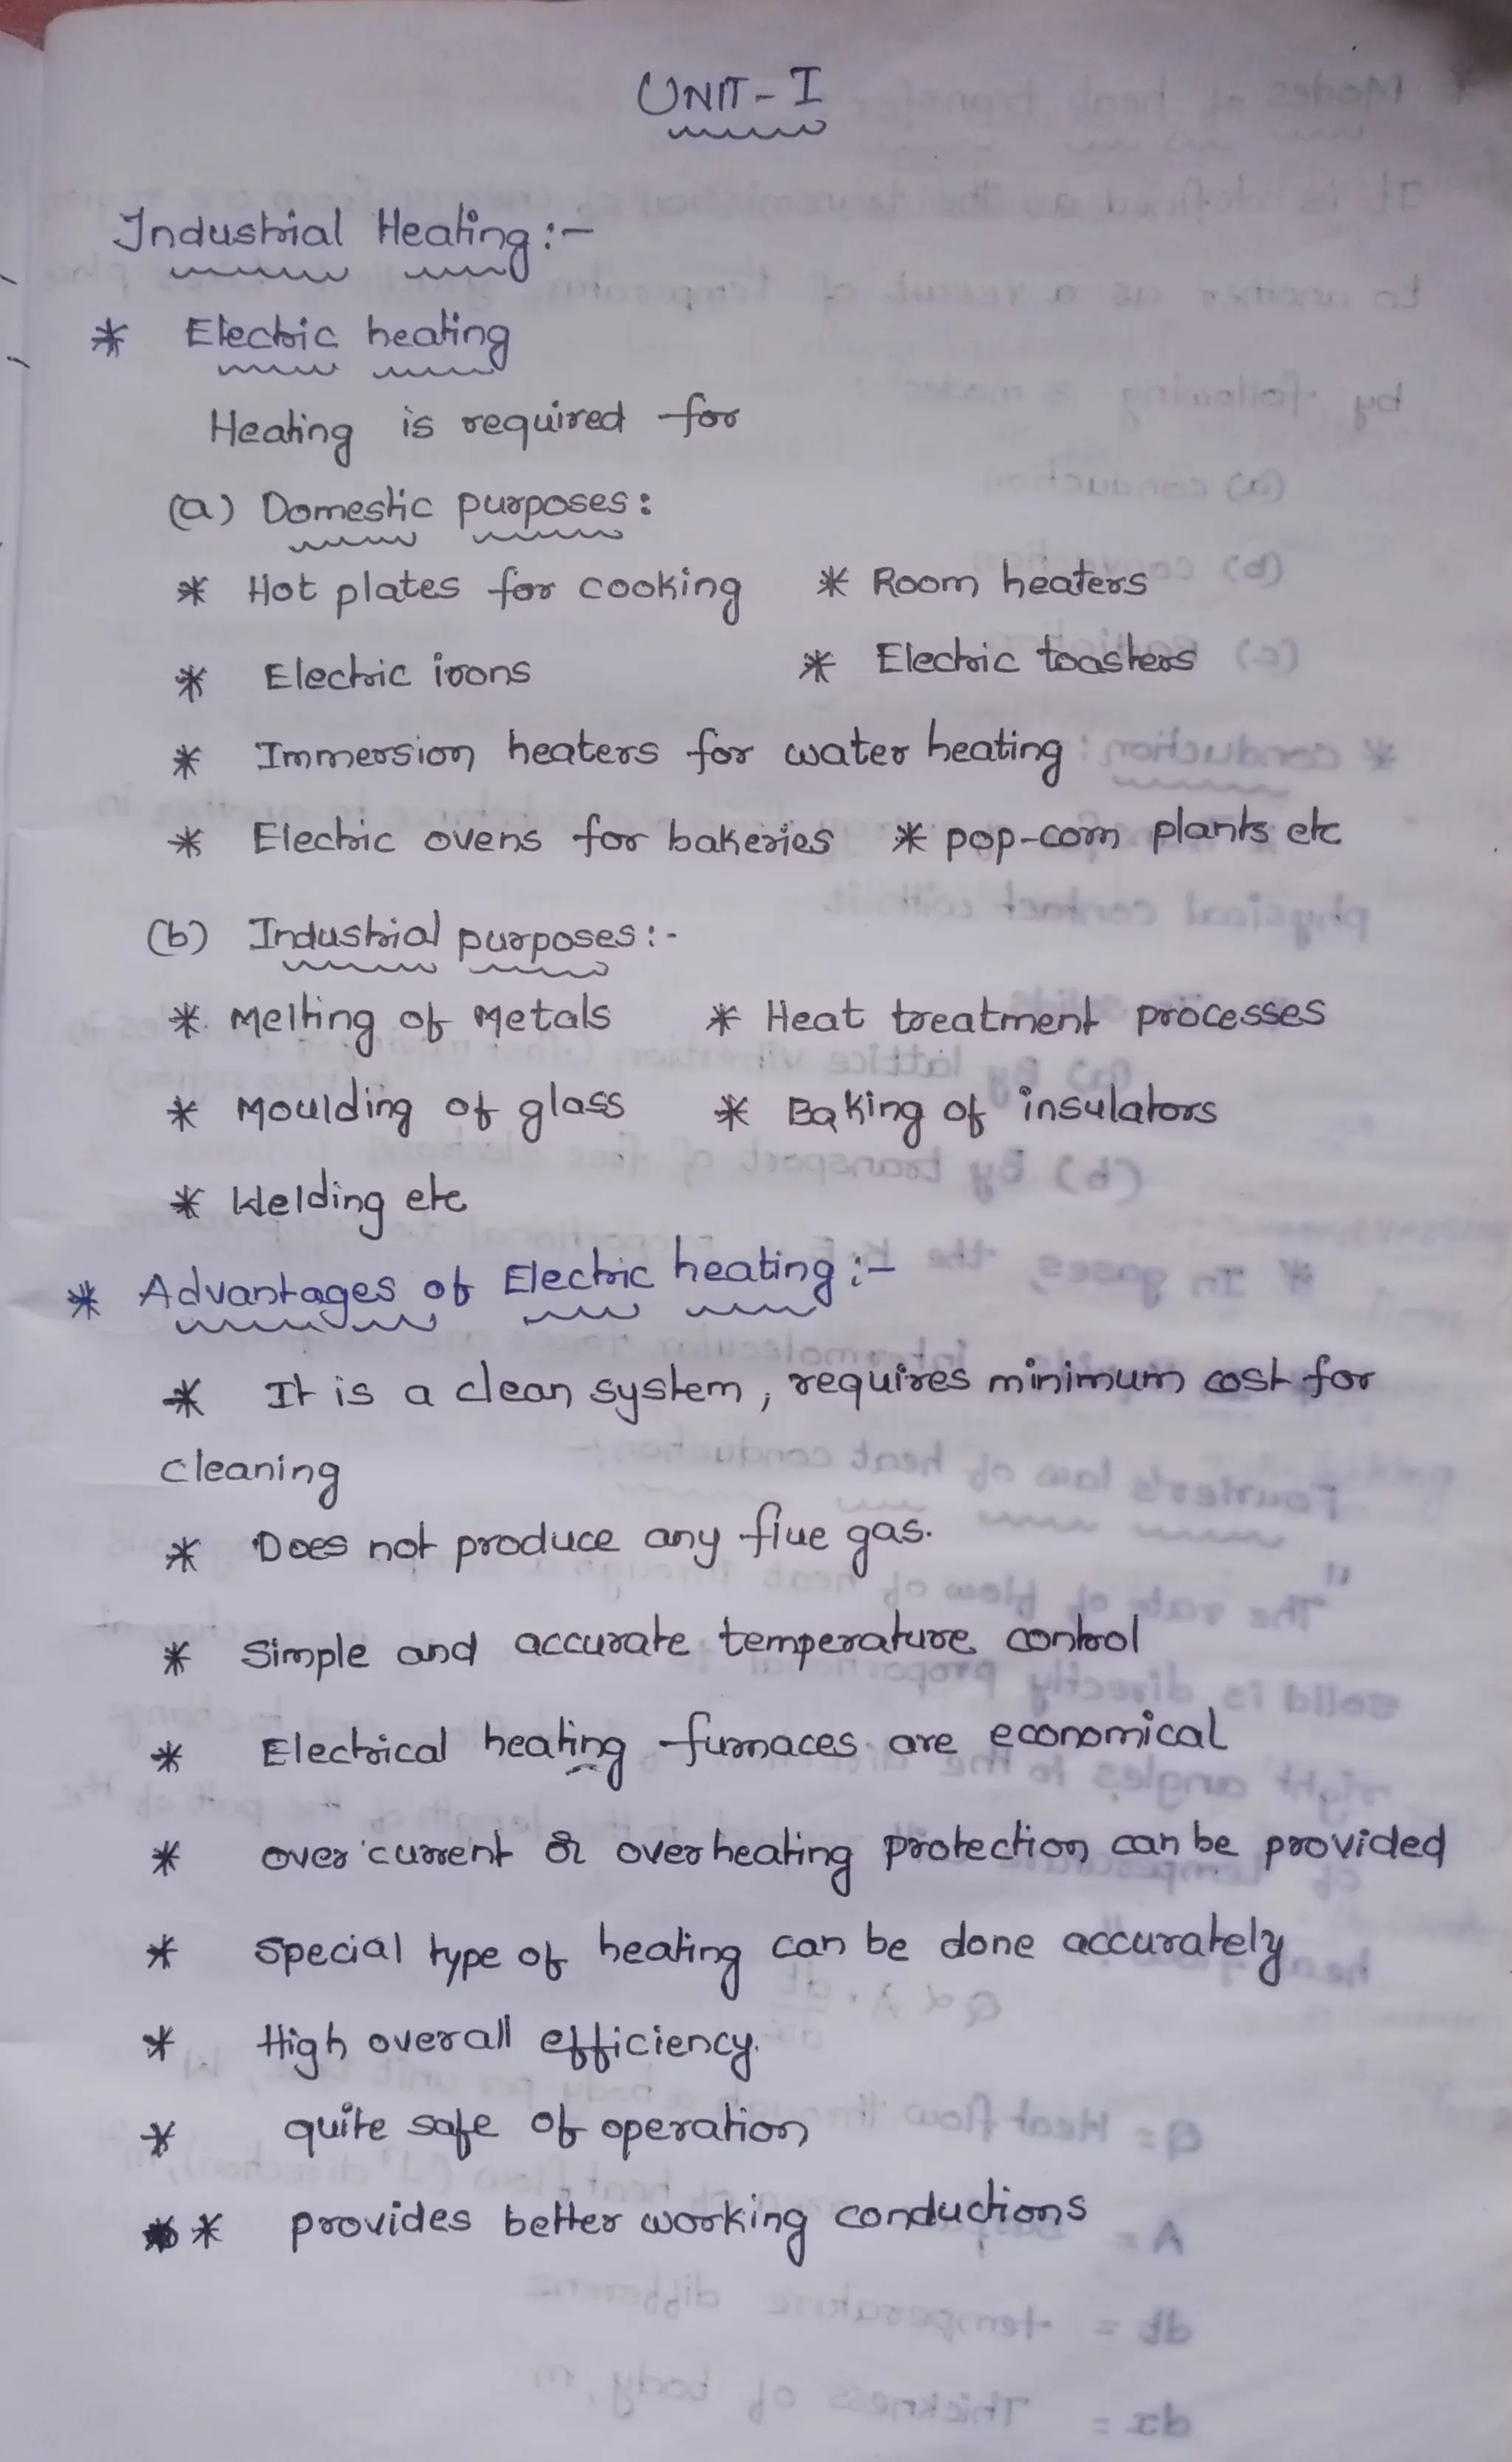 UNIT - I
Industrial Heating :-
* Electric heating
Heating is required for
(a) Domestic purposes :
* Hot plates for cooking * Room heaters
* Electric irons * Electric toasters
* Immersion heaters for water heating
* Electric ovens for bakeries * pop-corn plants etc
(b) Industrial purposes : -
* Melting of Metals * Heat treatment processes
* Moulding of glass * Baking of insulators
* Welding etc
* Advantages of Electric heating :-
* It is a clean system, requires minimum cost for
cleaning
* Does not produce any flue gas.
* Simple and accurate temperature control
* Electrical heating furnaces are economical
* over current or overheating protection can be provided
* Special type of heating can be done accurately
* High overall efficiency.
* quite safe of operation
* provides better working conductions